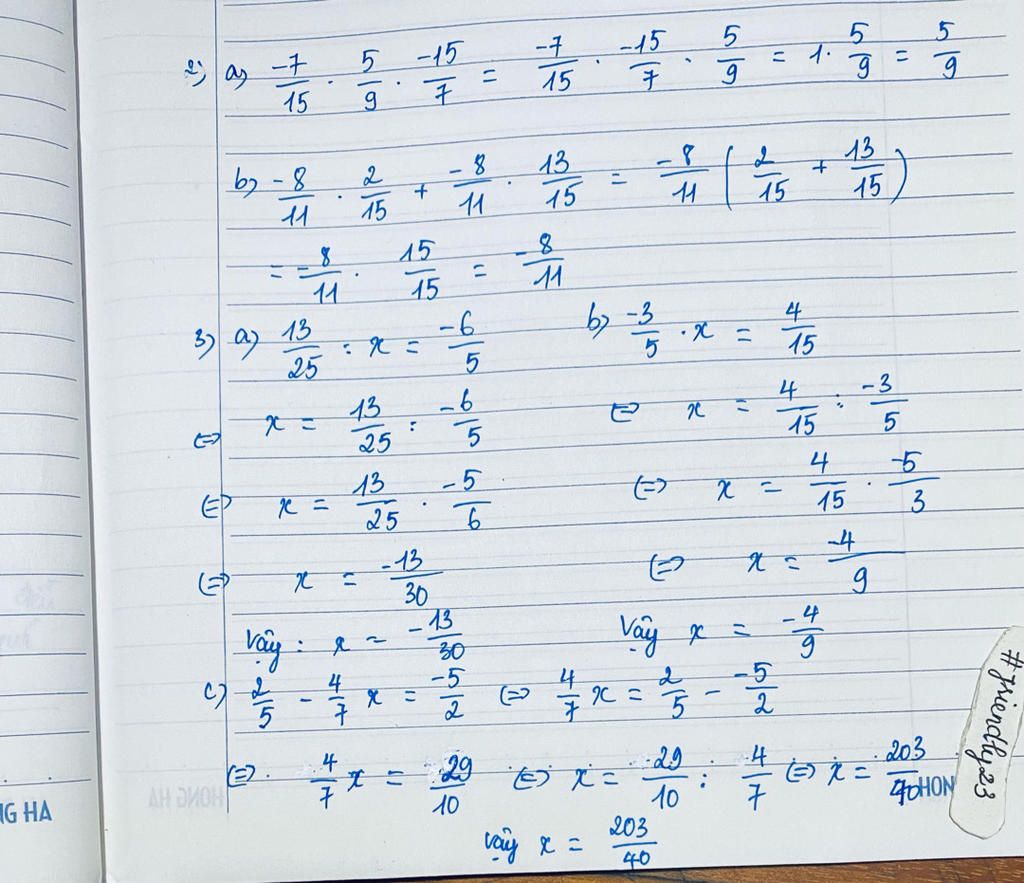 2) a) -7/15 . 5/9 . -15/7 = -7/15 . -15/7 . 5/9 = 1. 5/9 = 5/9
b) -8/11 . 2/15 + -8/11 . 13/15 = -8/11 ( 2/15 + 13/15 )
= -8/11 . 15/15 = -8/11
3) a) 13/25 : x = -6/5 b) -3/5 . x = 4/15
⇔ x = 13/25 : -6/5 ⇔ x = 4/15 : -3/5
⇔ x = 13/25 . -5/6 ⇔ x = 4/15 . -5/3
⇔ x = -13/30 ⇔ x = -4/9
Vậy : x = -13/30 Vậy x = -4/9
c) 2/5 - 4/7 x = -5/2 ⇔ 4/7 x = 2/5 - -5/2
⇔ 4/7 x = 29/10 ⇔ x = 29/10 : 4/7 ⇔ x = 203/40
Vậy x = 203/40
#friendly23
NG HA
HONG HA
HON